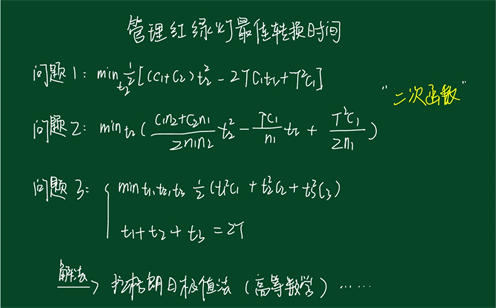 管理红绿灯最佳转换时间
问题1: min_{t₂} ½[(C₁+C₂)t₂² - 2TC₁t₂ + T²C₁]
"二次函数"
问题2: min_{t₂} ( (C₁n₂+C₂n₁)/(2n₁n₂) t₂² - (TC₁/n₁) t₂ + T²C₁/(2n₁) )
问题3: { min_{t₁,t₂,t₃} ½(t₁²C₁ + t₂²C₂ + t₃²C₃)
t₁+t₂+t₃ = 2T
解法→ 拉格朗日极值法 (高等数学) ······